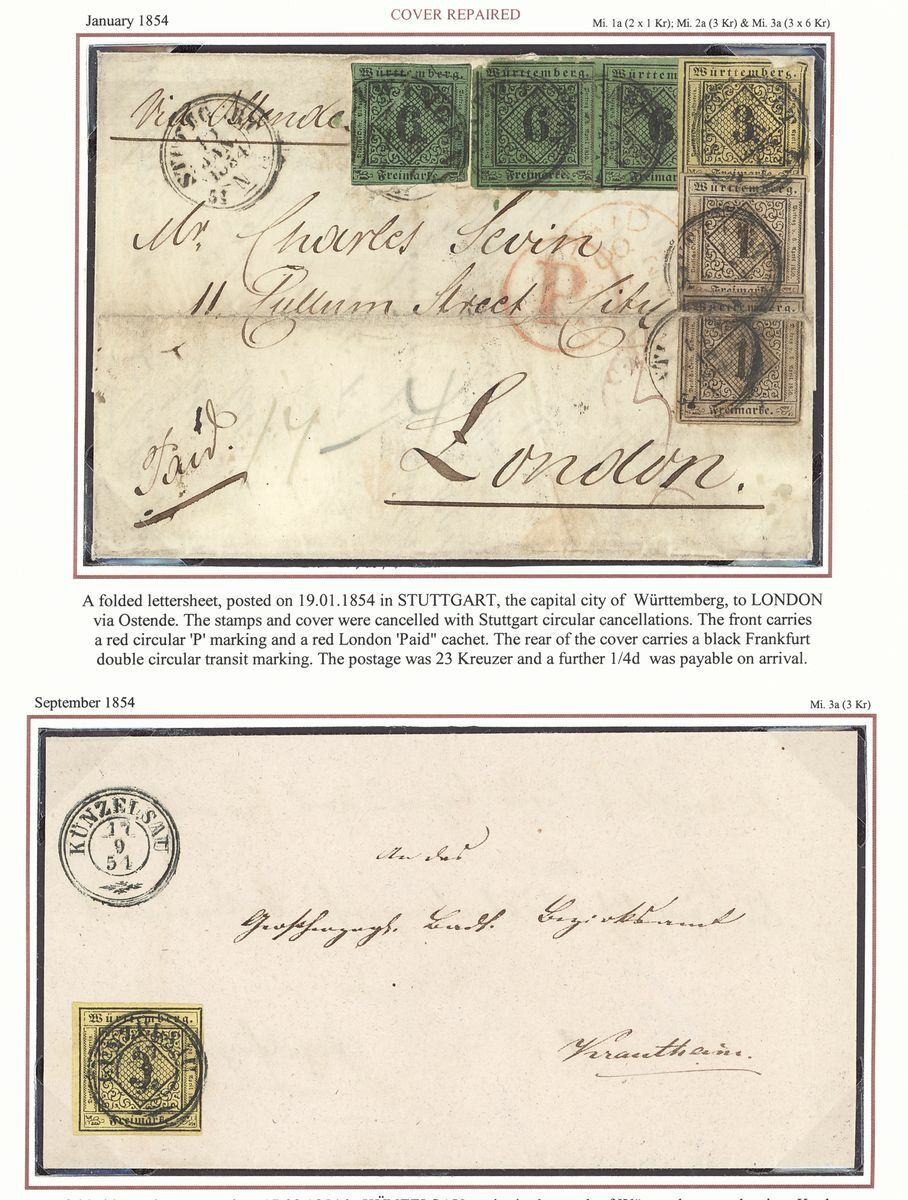 January 1854
COVER REPAIRED
Mi. 1a (2 x 1 Kr); Mi. 2a (3 Kr) & Mi. 3a (3 x 6 Kr)
Via Ostende.
STUTTGART
JAN
1854
Württemberg.
6
Freimarke.
Württemberg.
6
Freimarke.
Württem
6
Freimark
Württemberg.
3
Württemberg.
1
Freimarke.
Württemberg.
1
Freimarke.
Mr. Charles Sevin
P
PAID
11 Cullum Street City
Paid.
London.
A folded lettersheet, posted on 19.01.1854 in STUTTGART, the capital city of Württemberg, to LONDON
via Ostende. The stamps and cover were cancelled with Stuttgart circular cancellations. The front carries
a red circular 'P' marking and a red London 'Paid" cachet. The rear of the cover carries a black Frankfurt
double circular transit marking. The postage was 23 Kreuzer and a further 1/4d was payable on arrival.
September 1854
Mi. 3a (3 Kr)
KÜNZELSAU
17
9
51
An das
Großherzogl. Bad. Bezirksamt
Krautheim.
Württemberg.
3
Freimarke.